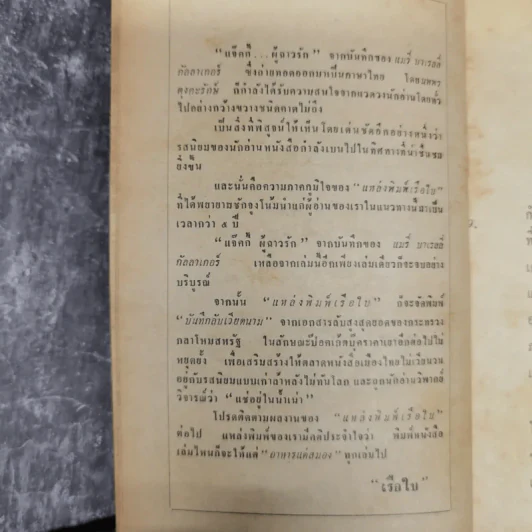 “แจ๊คกี้...ผู้ลาวรัก” จากบันทึกของ แมรี่ บาเรลลี่
กัลลาเกอร์ ซึ่งถ่ายทอดออกมาเป็นภาษาไทย โดย
ดุงคะรักษ์ ก็กำลังได้รับความสนใจจากแวดวงนักอ่านโดยทั่ว
ไปอย่างกว้างขวางชนิดคาดไม่ถึง
เป็นสิ่งที่พิสูจน์ให้เห็นโดยเด่นชัดอีกอย่างหนึ่งว่า
รสนิยมของนักอ่านหนังสือกำลังเบนไปในทิศทางที่น่าชื่นชม
ยิ่งขึ้น
และนั่นคือความภาคภูมิใจของ “แหล่งพิมพ์เรือใบ”
ที่ได้พยายามชักจูงโน้มนำแก่ผู้อ่านของเราในแนวทางนี้มาเป็น
เวลากว่า ๕ ปี
“แจ๊คกี้ ผู้ลาวรัก” จากบันทึกของ แมรี่ บาเรลลี่
กัลลาเกอร์ เหลือจากเล่มนี้อีกเพียงเล่มเดียวก็จะจบอย่าง
บริบูรณ์
จากนั้น “แหล่งพิมพ์เรือใบ” ก็จะจัดพิมพ์
“บันทึกลับเวียตนาม” จากเอกสารลับสุดยอดของกระทรวง
กลาโหมสหรัฐ ในลักษณะป๊อคเก้ตบุ๊คราคาเยาอีกต่อไปไม่
หยุดยั้ง เพื่อเสริมสร้างให้ตลาดหนังสือเมืองไทยไม่เวียนวน
อยู่กับรสนิยมแบบเก่าล้าหลังไม่ทันโลก และถูกนักอ่านวิพากษ์
วิจารณ์ว่า “แช่อยู่ในน้ำเน่า”
โปรดติดตามผลงานของ “แหล่งพิมพ์เรือใบ”
ต่อไป แหล่งพิมพ์ของเรามีคติประจำใจว่า พิมพ์หนังสือ
เล่มไหนก็จะให้แต่ “อาหารแด่สมอง” ทุกเล่มไป
“เรือใบ”